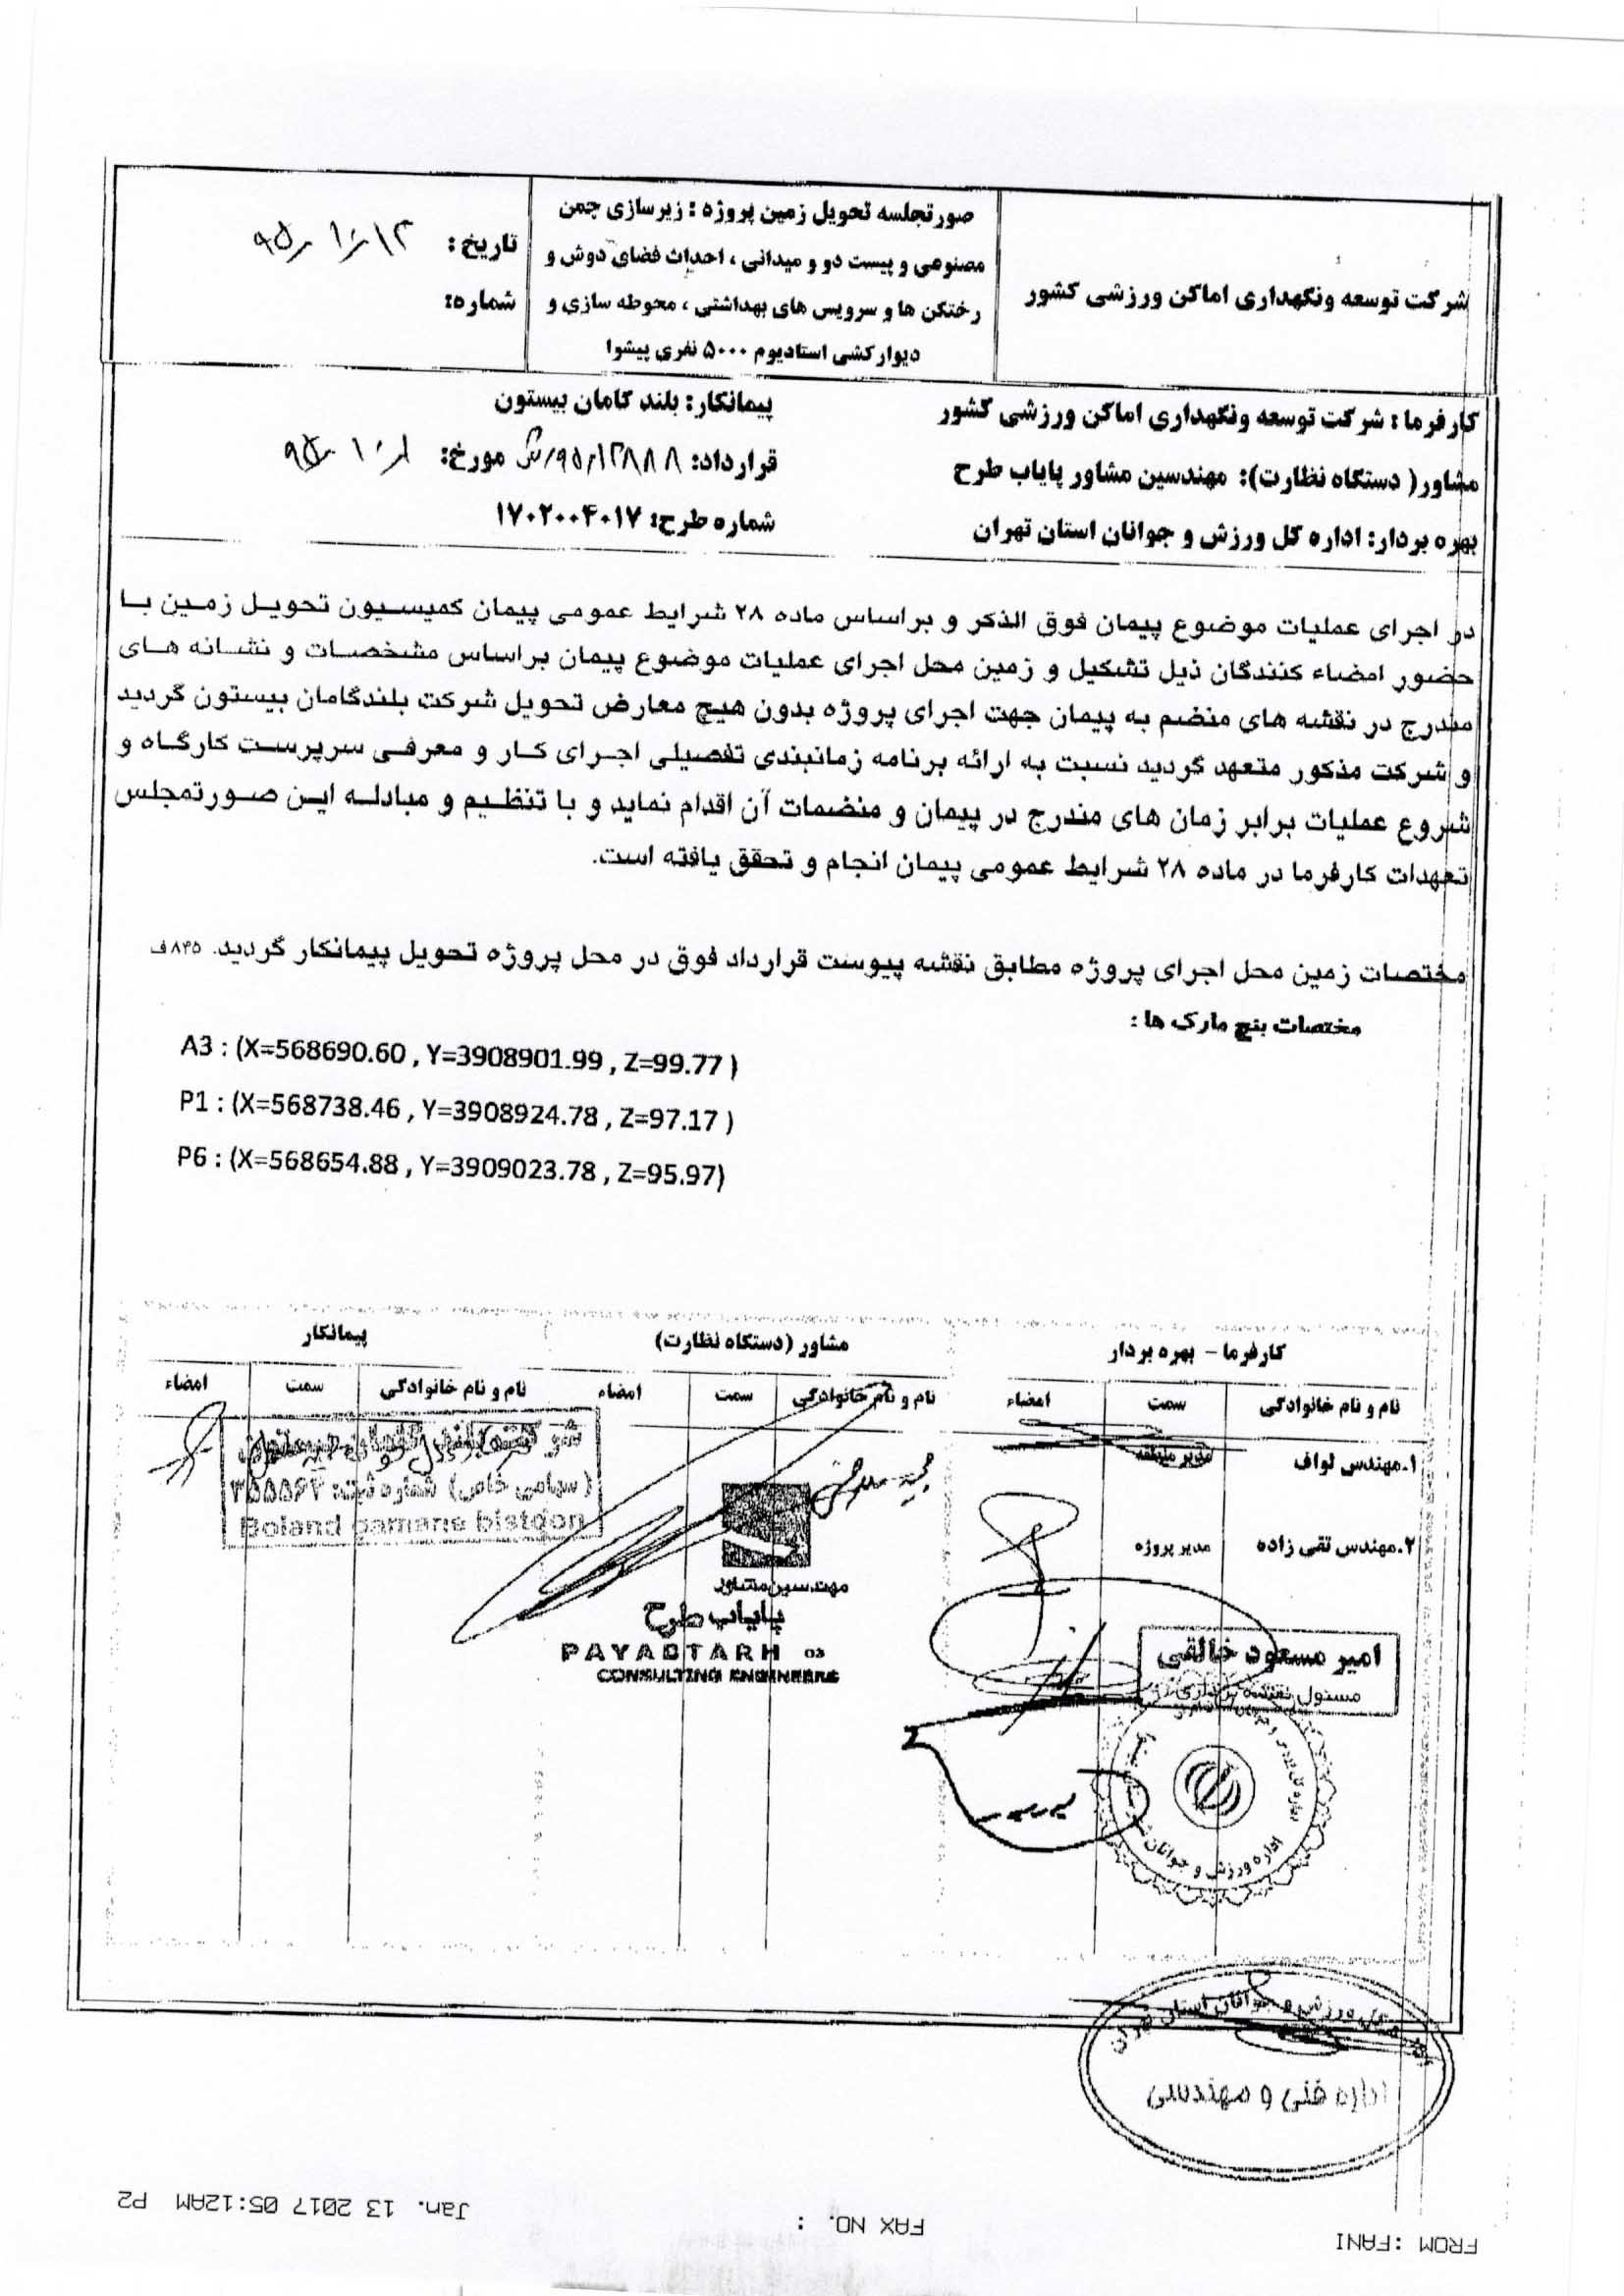 شرکت توسعه ونگهداری اماکن ورزشی کشور
صورتجلسه تحویل زمین پروژه : زیرسازی چمن
مصنوعی و پیست دو و میدانی ، احداث فضای دوش و
رختکن ها و سرویس های بهداشتی ، محوطه سازی و
دیوار کشی استادیوم ۵۰۰۰ نفری پیشوا
تاریخ :
شماره:
کارفرما : شرکت توسعه ونگهداری اماکن ورزشی کشور
پیمانکار: بلند گامان بیستون
مشاور( دستگاه نظارت): مهندسین مشاور پایاب طرح
قرارداد: مورخ:
بهره بردار: اداره کل ورزش و جوانان استان تهران
شماره طرح: ۱۷۰۲۰۰۴۰۱۷
در اجرای عملیات موضوع پیمان فوق الذکر و براساس ماده ۲۸ شرایط عمومی پیمان کمیسیون تحویل زمین با
حضور امضاء کنندگان ذیل تشکیل و زمین محل اجرای عملیات موضوع پیمان براساس مشخصات و نشانه های
مندرج در نقشه های منضم به پیمان جهت اجرای پروژه بدون هیچ معارض تحویل شرکت بلندگامان بیستون گردید
و شرکت مذکور متعهد گردید نسبت به ارائه برنامه زمانبندی تفصیلی اجرای کار و معرفی سرپرست کارگاه و
شروع عملیات برابر زمان های مندرج در پیمان و منضمات آن اقدام نماید و با تنظیم و مبادله این صورتمجلس
تعهدات کارفرما در ماده ۲۸ شرایط عمومی پیمان انجام و تحقق یافته است.
مختصات زمین محل اجرای پروژه مطابق نقشه پیوست قرارداد فوق در محل پروژه تحویل پیمانکار گردید. ۸۴۵ف
مختصات بنچ مارک ها :
A3 : (X=568690.60 , Y=3908901.99 , Z=99.77 )
P1 : (X=568738.46 , Y=3908924.78 , Z=97.17 )
P6 : (X=568654.88 , Y=3909023.78 , Z=95.97)
کارفرما – بهره بردار
مشاور (دستگاه نظارت)
پیمانکار
نام و نام خانوادگی سمت امضاء
نام و نام خانوادگی سمت امضاء
نام و نام خانوادگی سمت امضاء
۱.مهندس لواف مدیر منطقه
۲.مهندس تقی زاده مدیر پروژه
(سهامی خاص) شماره ثبت: ۳۵۵۵۶۲
Boland gamane bistoon
مهندسین مشاور
پایاب طرح
PAYABTARH 03
CONSULTING ENGINEERS
امیر مسعود خالقی
مسئول نقشه برداری
اداره ورزش و جوانان
ورزش و جوانان استان تهران
اداره فنی و مهندسی
FROM :FANI FAX NO. : Jan. 13 2017 05:12AM P2